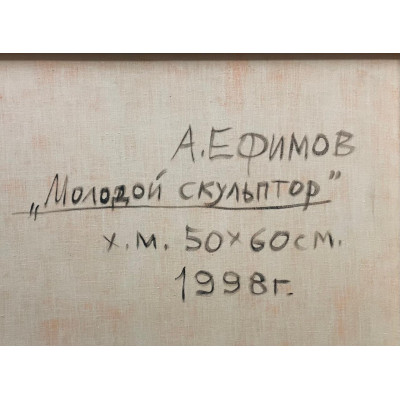 А.ЕФИМОВ
„Молодой скульптор"
х.м. 50×60см.
1998г.